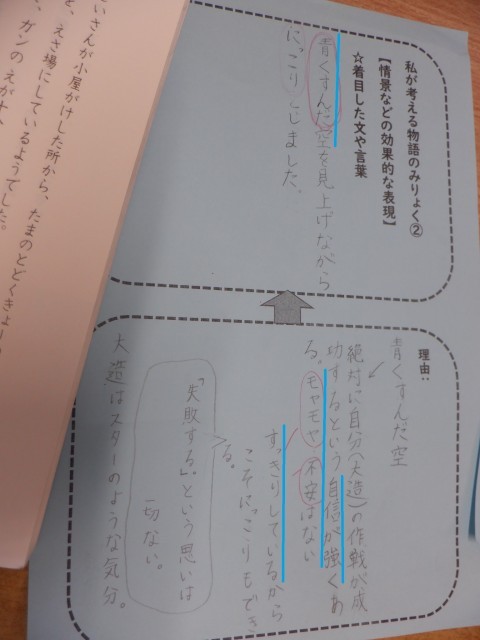 私が考える物語のみりょく②
【情景などの効果的な表現】
☆着目した文や言葉
青くすんだ空を見上げながら
にっこりとしました。
理由:
青くすんだ空
絶対に自分(大造)の作戦が成
功するという自信が強くあ
る。モヤモヤ、不安はない
すっきりしているから
こそにっこりもでき
る。
「失敗する」という思いは
一切ない。
大造はスターのような気分。
いさんが小屋がけした所から、たまのとどくきょり
を、えさ場にしているようでした。
ガンのえ